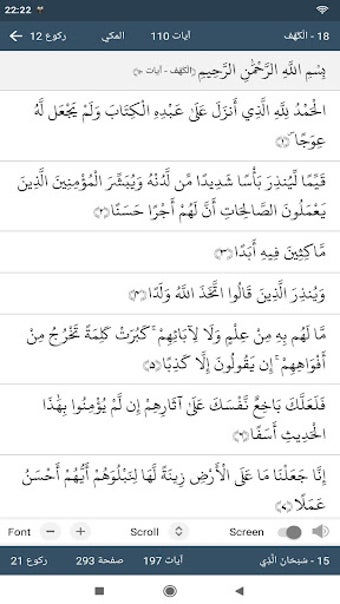 22:22
18 - الكهف آيات 110 المكي ركوع 12
بِسْمِ اللَّهِ الرَّحْمَٰنِ الرَّحِيمِ (الكهف - آيات ١٠)
الْحَمْدُ لِلَّهِ الَّذِي أَنزَلَ عَلَىٰ عَبْدِهِ الْكِتَابَ وَلَمْ يَجْعَل لَّهُ
عِوَجًا ۜ ﴿١﴾
قَيِّمًا لِّيُنذِرَ بَأْسًا شَدِيدًا مِّن لَّدُنْهُ وَيُبَشِّرَ الْمُؤْمِنِينَ الَّذِينَ
يَعْمَلُونَ الصَّالِحَاتِ أَنَّ لَهُمْ أَجْرًا حَسَنًا ﴿٢﴾
مَّاكِثِينَ فِيهِ أَبَدًا ﴿٣﴾
وَيُنذِرَ الَّذِينَ قَالُوا اتَّخَذَ اللَّهُ وَلَدًا ﴿٤﴾
مَّا لَهُم بِهِ مِنْ عِلْمٍ وَلَا لِآبَائِهِمْ ۚ كَبُرَتْ كَلِمَةً تَخْرُجُ مِنْ
أَفْوَاهِهِمْ ۚ إِن يَقُولُونَ إِلَّا كَذِبًا ﴿٥﴾
فَلَعَلَّكَ بَاخِعٌ نَّفْسَكَ عَلَىٰ آثَارِهِمْ إِن لَّمْ يُؤْمِنُوا بِهَٰذَا
الْحَدِيثِ أَسَفًا ﴿٦﴾
إِنَّا جَعَلْنَا مَا عَلَى الْأَرْضِ زِينَةً لَّهَا لِنَبْلُوَهُمْ أَيُّهُمْ أَحْسَنُ
عَمَلًا ﴿٧﴾
Font Scroll Screen
15 - سُبْحَانَ الَّذِي آيات 197 صفحة 293 ركوع 21